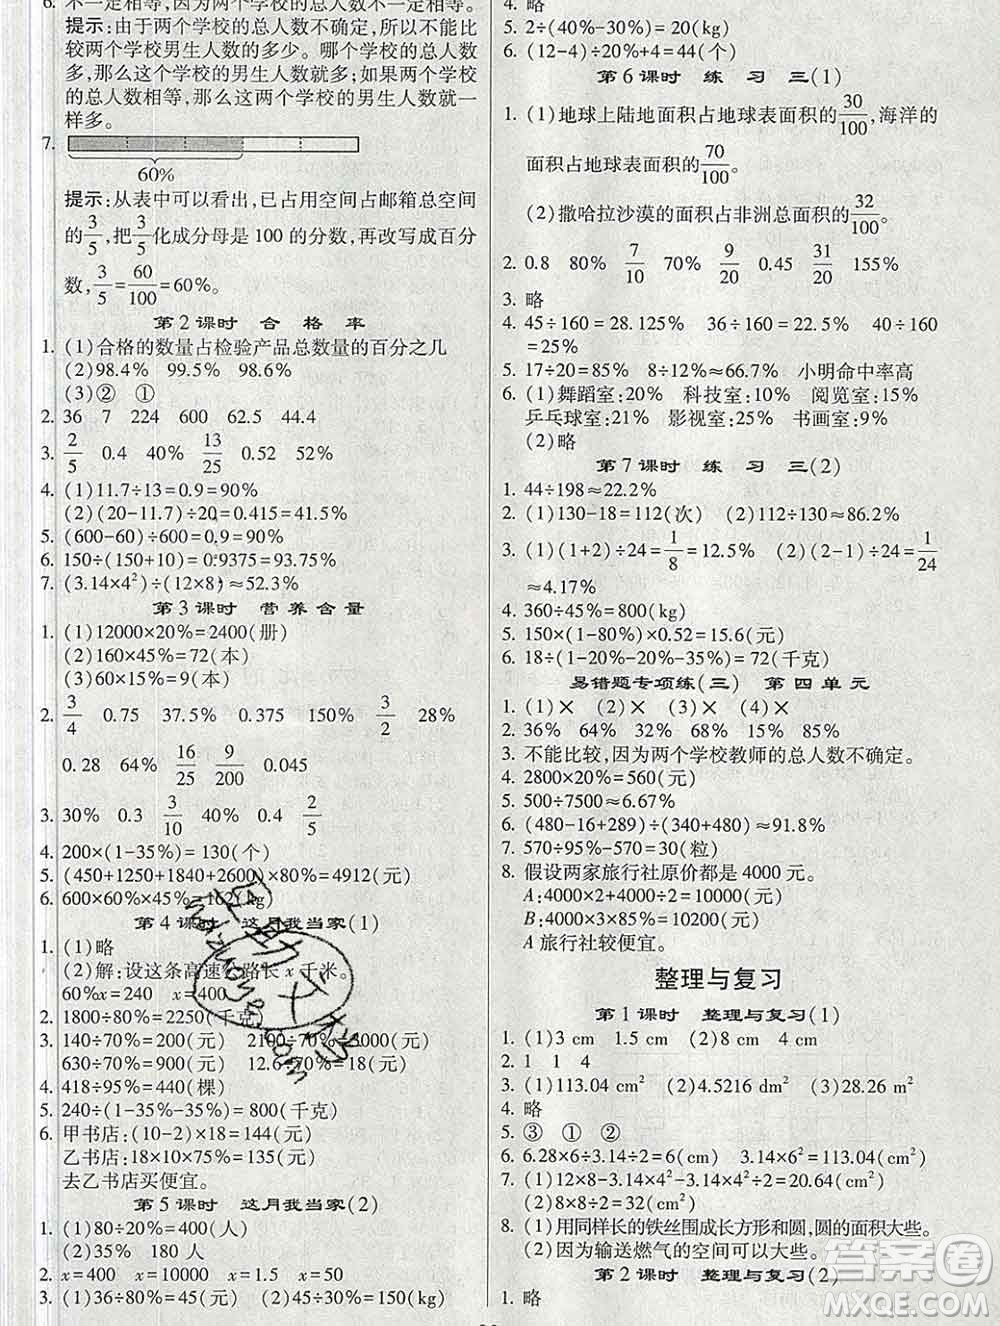 6. 不一定相等,因为两个学校的总人数不一定相等。
提示:由于两个学校的总人数不确定,所以不能比
较两个学校男生人数的多少。哪个学校的总人
数多,那么这个学校的男生人数就多;如果两个学校
的总人数相等,那么这两个学校的男生人数就一
样多。
7.
60%
提示:从表中可以看出,已占用空间占邮箱总空间
的3/5,把3/5化成分母是 100 的分数,再改写成百分
数,3/5=60/100=60%。
第 2 课时 合 格 率
1. (1)合格的数量占检验产品总数量的百分之几
(2)98.4% 99.5% 98.6%
(3)② ①
2. 36 7 224 600 62.5 44.4
3. 2/5 0.4 40% 13/25 0.52 52%
4. (1)11.7÷13=0.9=90%
(2)(20-11.7)÷20=0.415=41.5%
5. (600-60)÷600=0.9=90%
6. 150÷(150+10)=0.9375=93.75%
7. (3.14×4²)÷(12×8)≈52.3%
第 3 课时 营 养 含 量
1. (1)12000×20%=2400(册)
(2)160×45%=72(本)
(3)60×15%=9(本)
2. 3/4 0.75 37.5% 0.375 150% 3/2 28%
0.28 64% 16/25 9/200 0.045
3. 30% 0.3 3/10 40% 0.4 2/5
4. 200×(1-35%)=130(个)
5. (450+1250+1840+2600)×80%=4912(元)
6. 600×60%×45%=162(kg)
第 4 课时 这月我当家(1)
1. (1)略
(2)解:设这条高速公路长 x 千米。
60%x=240 x=400
2. 1800÷80%=2250(千克)
3. 140÷70%=200(元) 2100÷70%=3000(元)
630÷70%=900(元) 12.6÷70%=18(元)
4. 418÷95%=440(棵)
5. 240÷(1-35%-35%)=800(千克)
6. 甲书店:(10-2)×18=144(元)
乙书店:18×10×75%=135(元)
去乙书店买便宜。
第 5 课时 这月我当家(2)
1. (1)80÷20%=400(人)
(2)35% 180 人
2. x=400 x=10000 x=1.5 x=50
3. (1)36÷80%=45(元) (2)45÷30%=150(kg)
4. 略
5. 2÷(40%-30%)=20(kg)
6. (12-4)÷20%+4=44(个)
第 6 课时 练 习 三(1)
1. (1)地球上陆地面积占地球表面积的30/100,海洋的
面积占地球表面积的70/100。
(2)撒哈拉沙漠的面积占非洲总面积的32/100。
2. 0.8 80% 7/10 70% 9/20 0.45 31/20 155%
3. 略
4. 45÷160=28.125% 36÷160=22.5% 40÷160
=25%
5. 17÷20=85% 8÷12≈66.7% 小明命中率高
6. (1)舞蹈室:20% 科技室:10% 阅览室:15%
乒乓球室:21% 影视室:25% 书画室:9%
(2)略
第 7 课时 练 习 三(2)
1. 44÷198≈22.2%
2. (1)130-18=112(次) (2)112÷130≈86.2%
3. (1)(1+2)÷24=1/8=12.5% (2)(2-1)÷24=1/24
≈4.17%
4. 360÷45%=800(kg)
5. 150×(1-80%)×0.52=15.6(元)
6. 18÷(1-20%-20%-35%)=72(千克)
易错题专项练(三) 第 四 单 元
1. (1)× (2)× (3)× (4)×
2. 36% 64% 32% 68% 15% 85%
3. 不能比较,因为两个学校教师的总人数不确定。
4. 2800×20%=560(元)
5. 500÷7500≈6.67%
6. (480-16+289)÷(340+480)≈91.8%
7. 570÷95%-570=30(粒)
8. 假设两家旅行社原价都是 4000 元。
A:4000×2+4000÷2=10000(元)
B:4000×3×85%=10200(元)
A 旅行社较便宜。
整理与复习
第 1 课时 整理与复习(1)
1. (1)3 cm 1.5 cm (2)8 cm 4 cm
2. 1 1 4
3. (1)113.04 cm² (2)4.5216 dm² (3)28.26 m²
4. 略
5. ③ ① ②
6. 6.28×6÷3.14÷2=6(cm) 3.14×6²=113.04(cm²)
7. (1)12×8-3.14×4²-3.14×(4÷2)²=33.2(cm²)
(2)8×8÷2=32(cm²)
8. (1)用同样长的铁丝围成长方形和圆,圆的面积大些。
(2)因为输送燃气的空间可以大些。
第 2 课时 整理与复习(2)
1. 略
答案圈
MXQE.COM